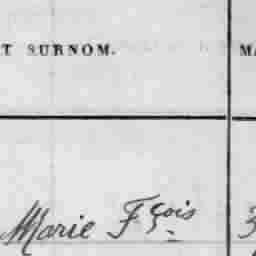 T SURNOM. MA
Marie Fçois 3